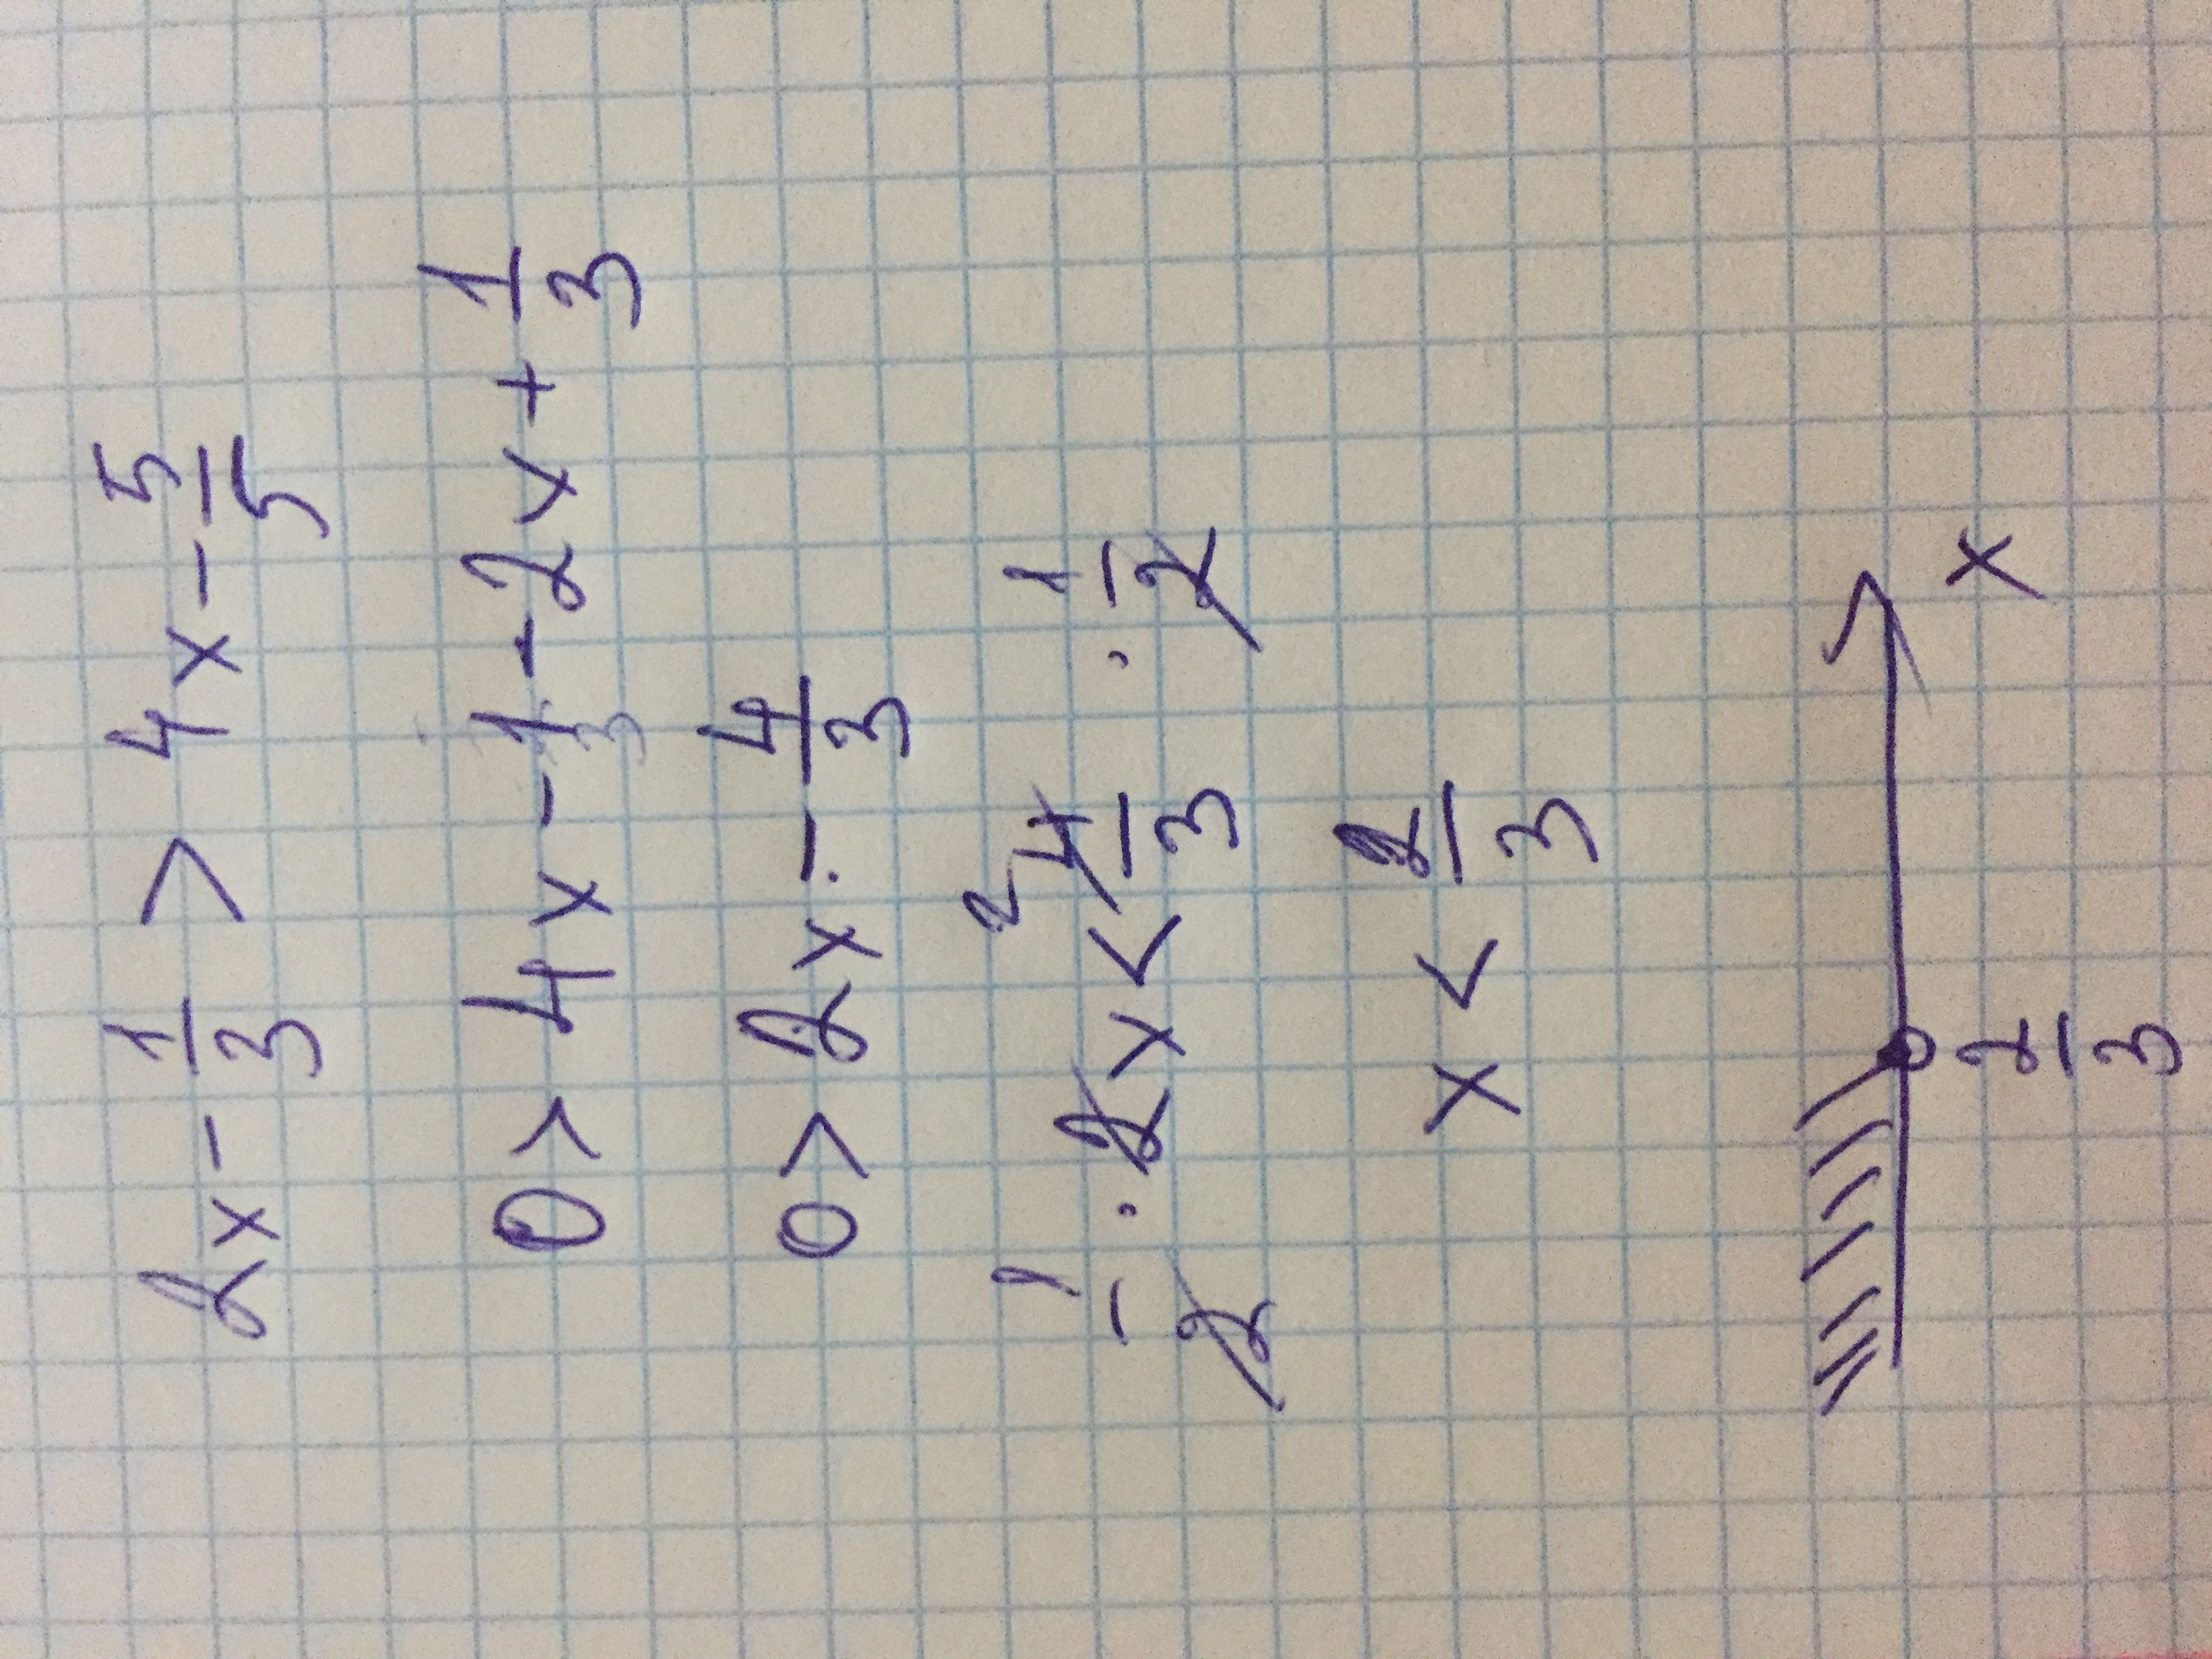 2x - 1/3 > 4x - 5/5
0 > 4x - 1 - 2x + 1/3
0 > 2x - 4/3
1/2 · 2x < 4/3 · 1/2
x < 2/3
2/3 x